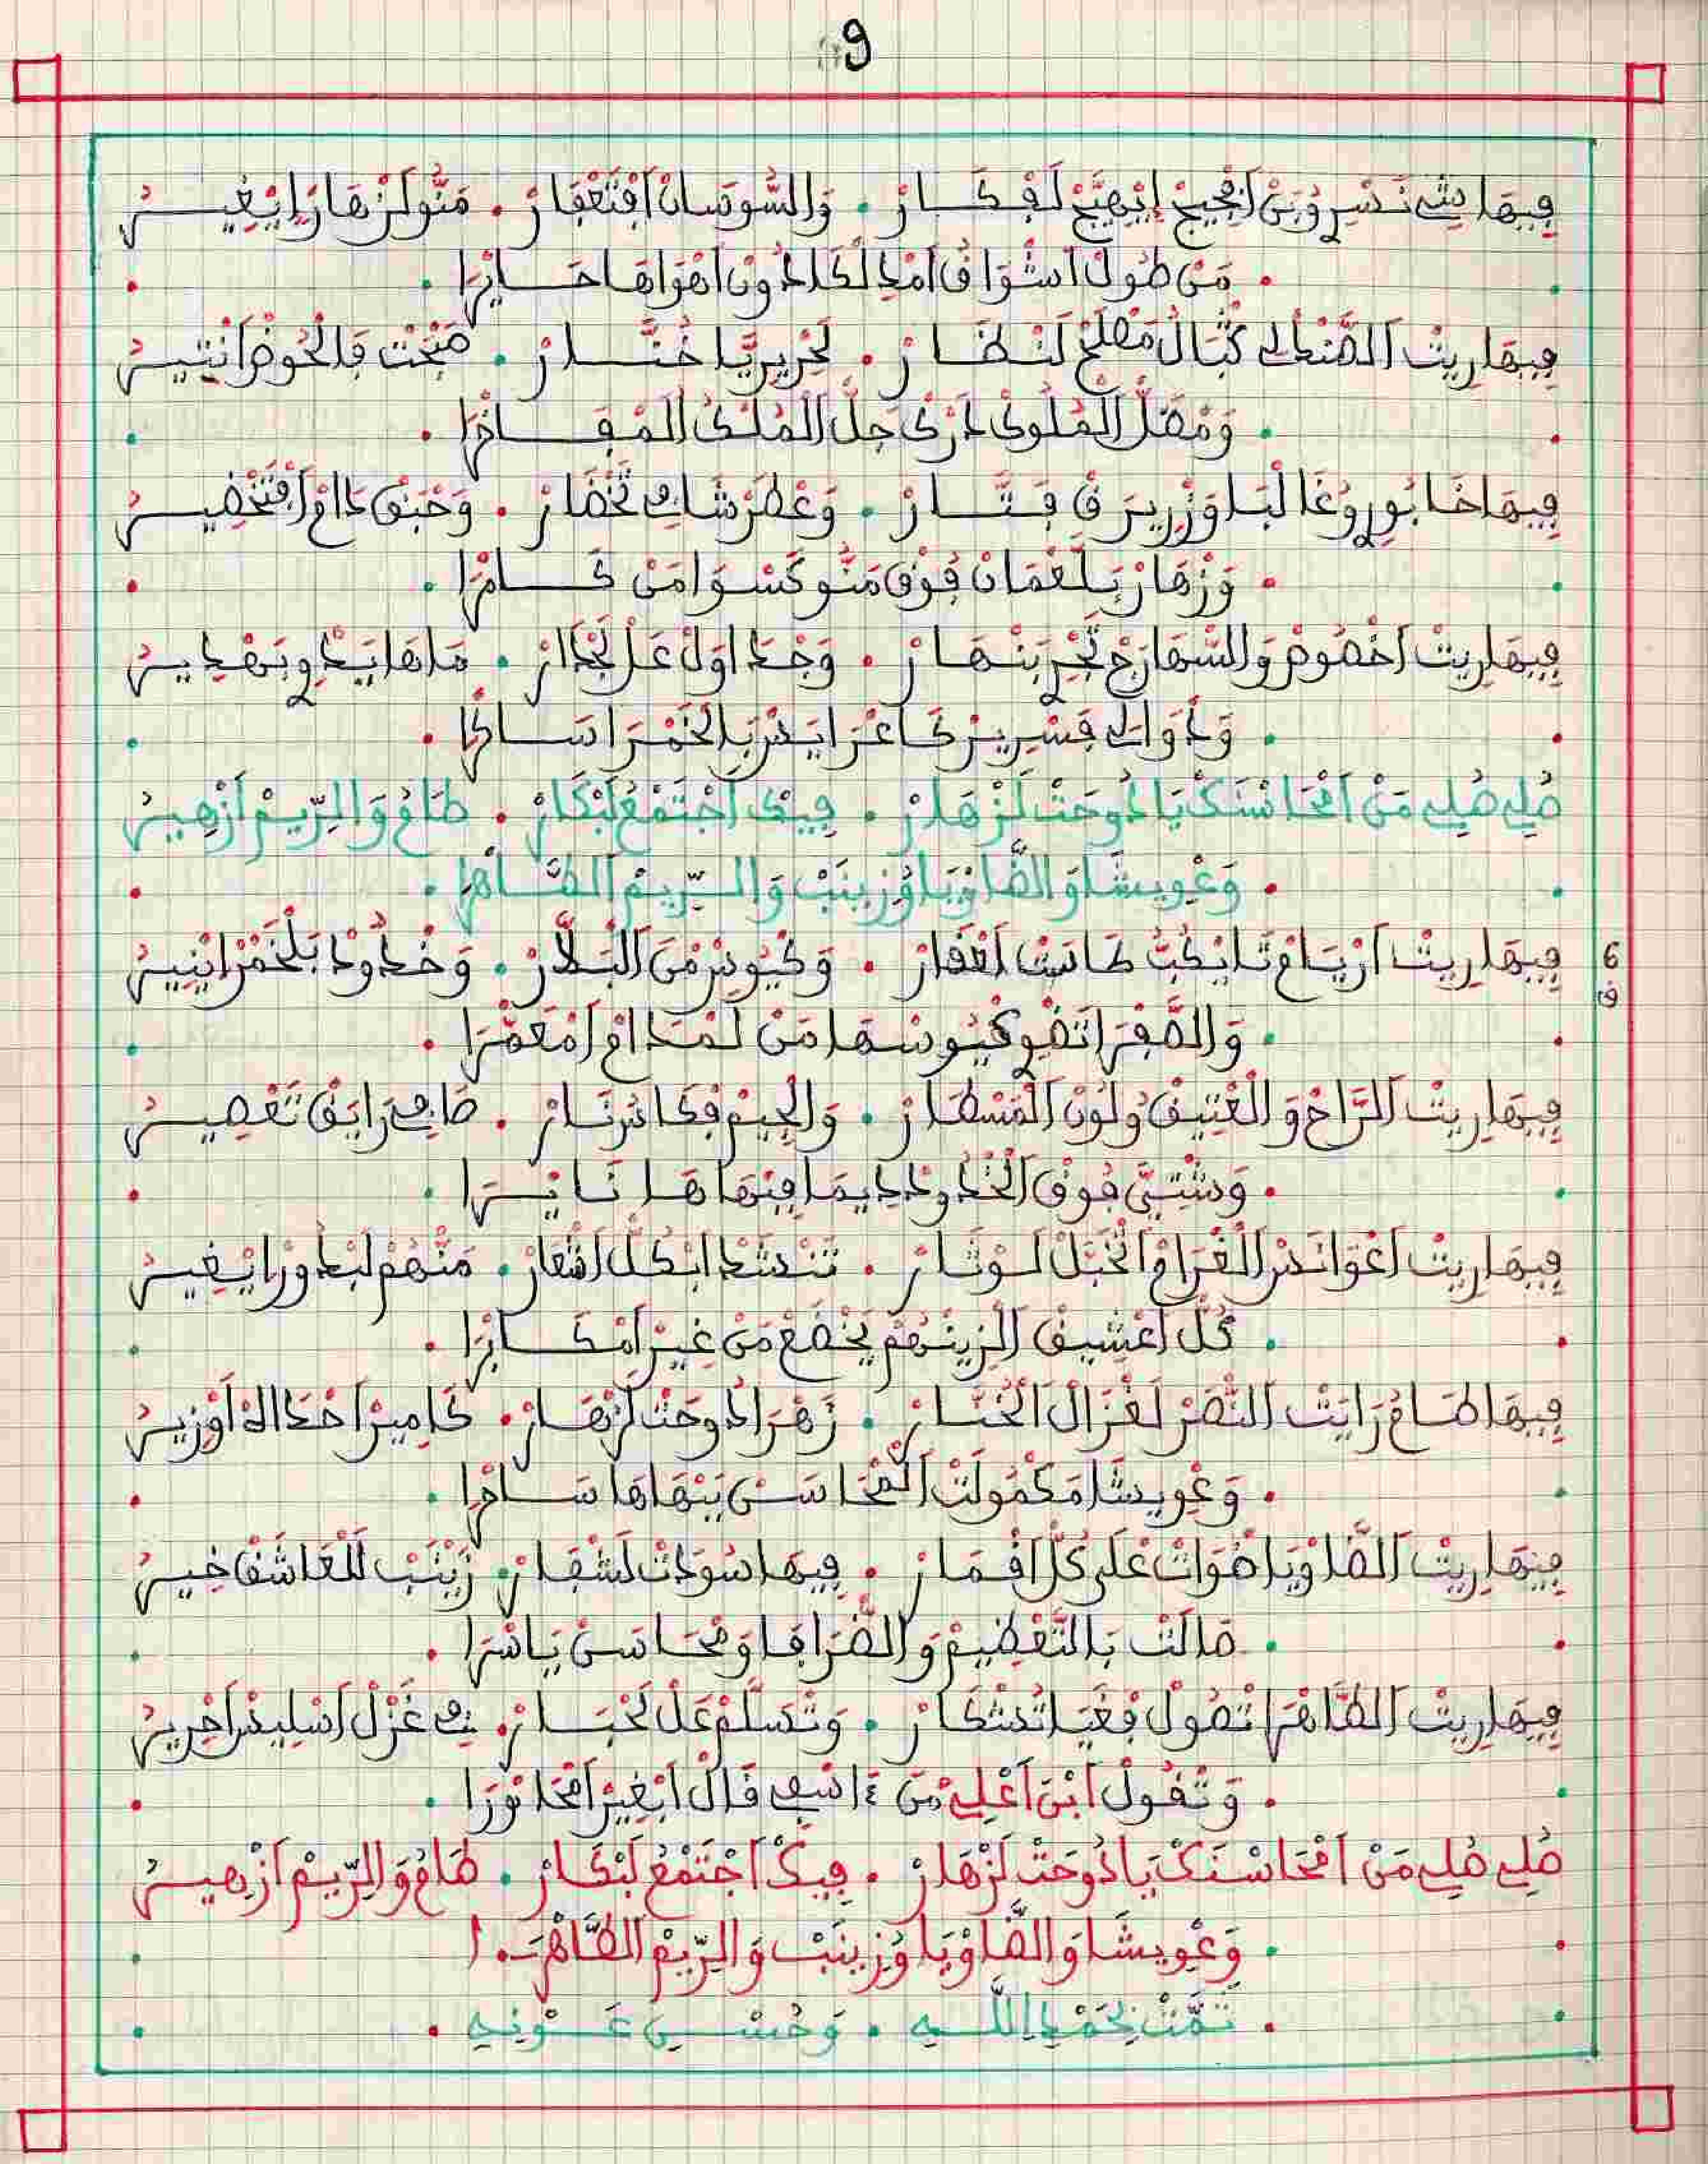 9
فيها شي نسريو بن افجيج ايهيج لفكار . والسوسان افتعفار . منو لزهار ايغير
. من طول اشواق امداد اهواها حايرا .
فيها ريت الصنعالي كتبال مصلح لنظار . لحرير يا ختار . صبحت فالحوض انتير
. ومضل الملوك ادرك جل الملك المفاخرا .
فيها خابورو غالبا وزريرق فتار . وعطرشافي تخضار . وحبق دام افتخضير
. وزهار بلعمان فوق منو كسوا من كامرا .
فيها ريت اخصوص والسهارج تجر بنهار . وجداول عل لجدار . ماها يدوي بهدير
. ودوالي فسرير كاعرايس بالخمرا ساكرا .
صلي صلي من امحاسنك يا دوحت لزهار . فيك اجتمع لبكار . طام والريم ازهير
. وغويشا والضاويا وزينب والريم الطاهرا .
6
ق
فيها ريت اريام تايكب كاست اعقار . وكيوس من البلار . وخدود بلخمر انير
. والصفرا تضوي كيوسها من لمدام امعمرا .
فيها ريت الراح والعتيق ولون المسطار . والجيم فكاس نار . صافي رايق تعصير
. وشتي فوق الخدود ديما فبهاها نايرا .
فيها ريت اعوانس الغرام اتخبل لوتار . تنشد ابكل اشعار . منهم لبدور ايغير
. كل اعشيق الزينهم يخضع من غير امكابرا .
فيها طام رايت النصر لغزال الخنار . زهرا دوحت لزهار . كامير احداه اوزير
. وغويشا مكمولت المحاسن ببهاها سامرا .
فيها ريت الضاويا ضوات على كل اقمار . فيها سودات لشفار . زينب للعاشق خير
. مالت بالتعظيم والضرافا ومحاسن ياسرا .
فيها ريت الطاهرا تصول فغيا تشكار . وتسلم عل لحبار . في غزل اسليس احرير
. وتقول ابن اعلي من ءاسفي قال ابغير امحاورا .
صلي صلي من امحاسنك يا دوحت لزهار . فيك اجتمع لبكار . طام والريم ازهير
. وغويشا والضاويا وزينب والريم الطاهرا .
. تمت بحمد الله . وحسن عونه .